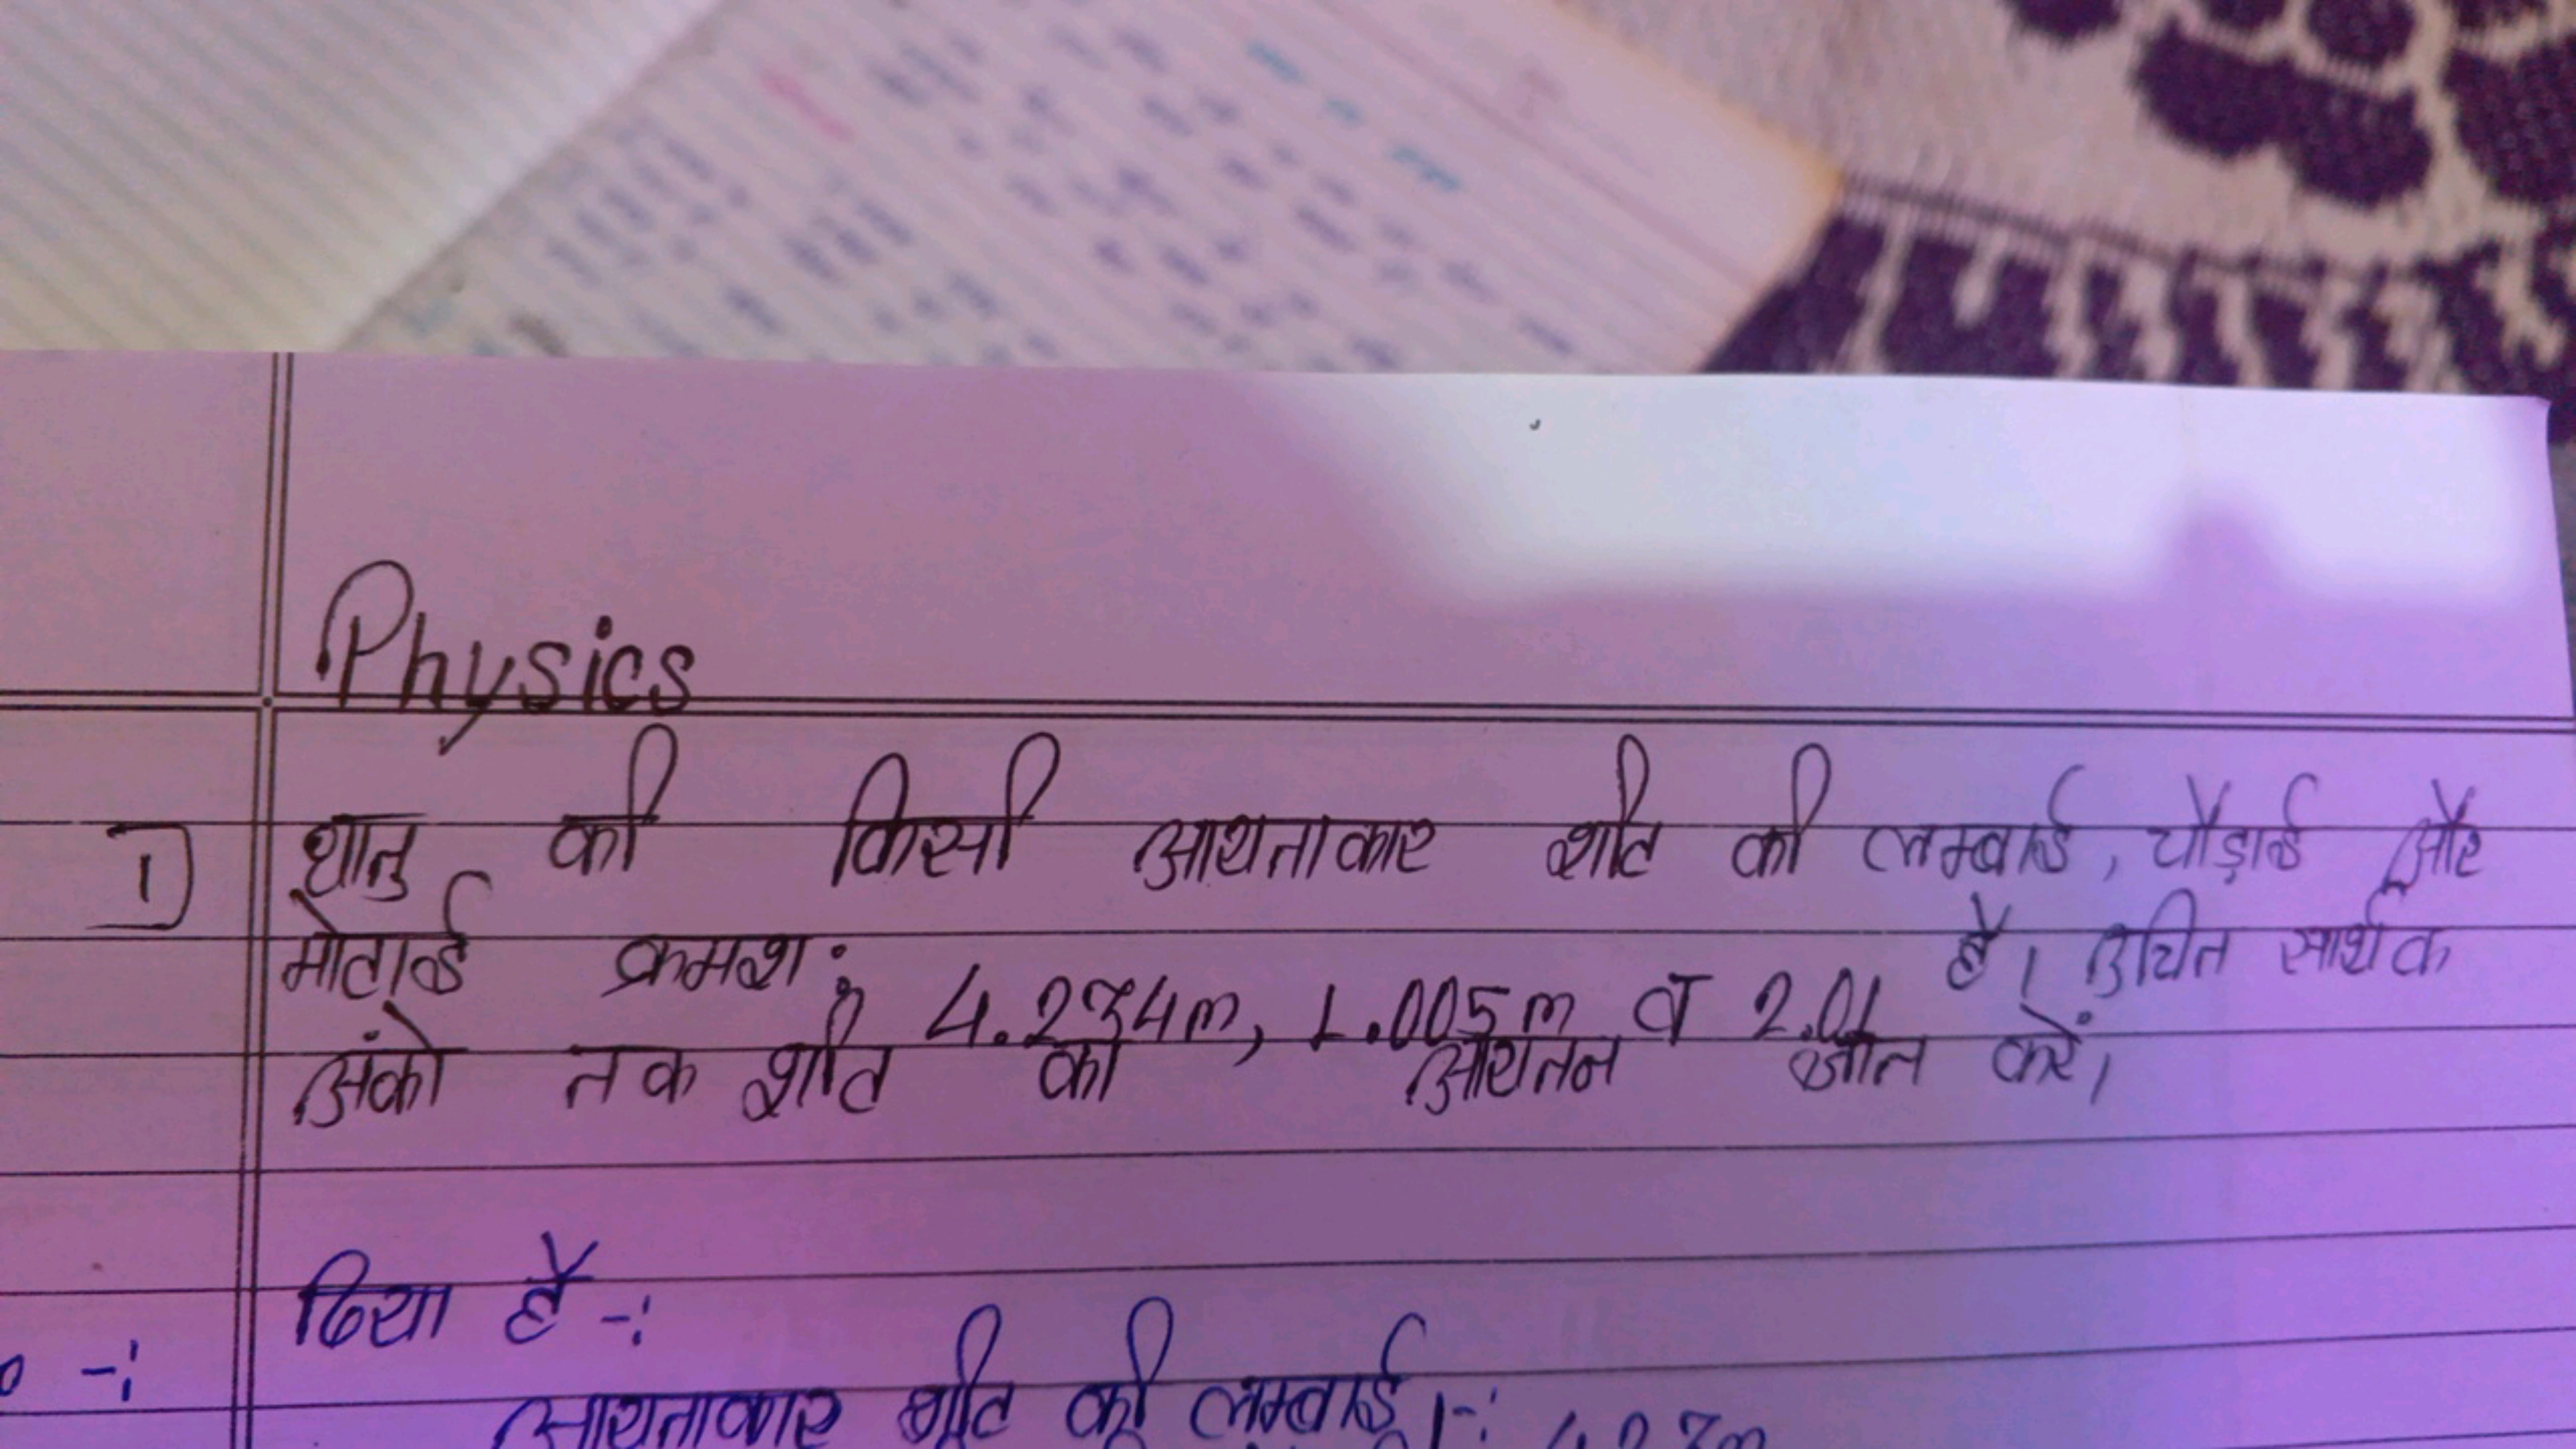 Physics
1) धातु की किसी आयताकार शीट की लम्बाई, चौड़ाई और
मोटाई क्रमश: 4.234m, 1.005m व 2.01 है। उचित सार्थक
अंको तक शीट का आयतन ज्ञात करें।
दिया है -:
आयताकार शीट की लम्बाई